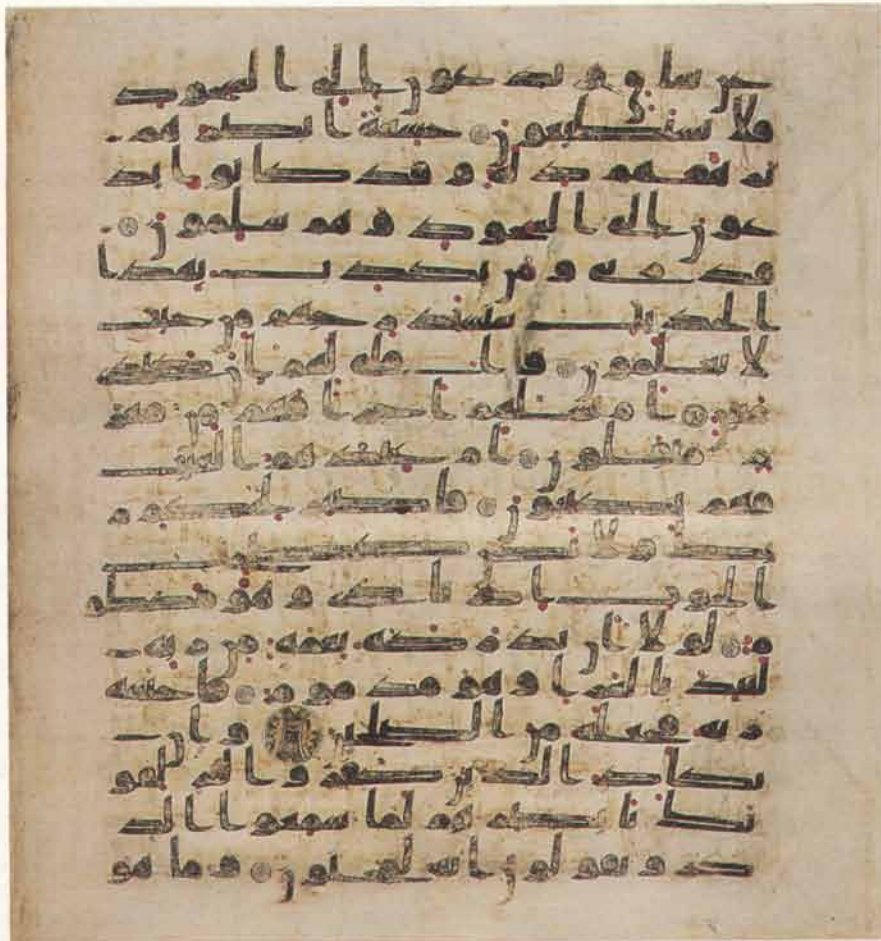 عن ساق ويدعون الى السجود
فلا يستطيعون خشعة ابصرهم
ترهقهم ذلة وقد كانوا يد
عون الى السجود وهم سلمون
فذرني ومن يكذب بهذا
الحديث سنستدرجهم من حيث
لا يعلمون واملي لهم ان كيدي
متين ام تسلهم اجرا فهم من مغر
م مثقلون ام عندهم الغيب
فهم يكتبون فاصبر لحكم ر
بك ولا تكن كصحب
الحوت اذ نادى وهو مكظو
م لولا ان تدركه نعمة من ربه
لنبذ بالعرا وهو مذموم فاجتبه
ربه فجعله من الصلحين وان
يكاد الذين كفروا ليزلقو
نك بابصرهم لما سمعوا الذ
كر ويقولون انه لمجنون وما هو